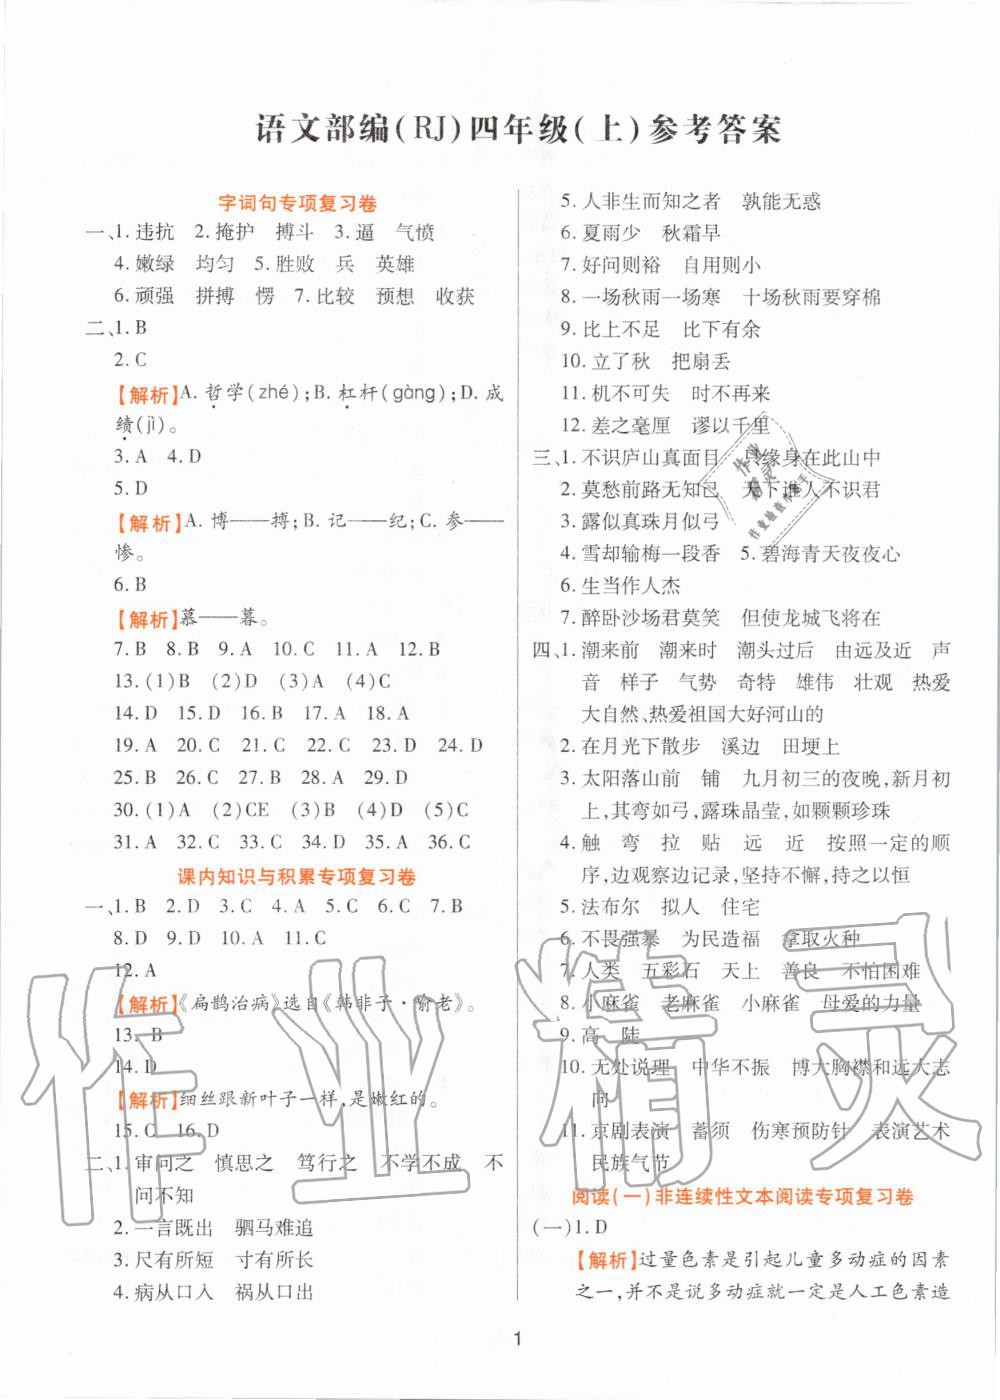 语文部编(RJ)四年级(上)参考答案
字词句专项复习卷
一、1. 违抗　2. 掩护　搏斗　3. 逼　气愤
4. 嫩绿　均匀　5. 胜败　兵　英雄
6. 顽强　拼搏　愣　7. 比较　预想　收获
二、1. B
2. C
【解析】A. 哲学(zhé);B. 杠杆(gàng);D. 成
绩(jì)。
3. A　4. D
5. D
【解析】A. 博——搏;B. 记——纪;C. 参——
惨。
6. B
【解析】慕——暮。
7. B　8. B　9. B　10. C　11. A　12. B
13. (1)B　(2)D　(3)A　(4)C
14. D　15. D　16. B　17. A　18. A
19. A　20. C　21. C　22. C　23. D　24. D
25. B　26. C　27. B　28. A　29. C
30. (1)A　(2)CE　(3)B　(4)D　(5)C
31. A　32. C　33. C　34. D　35. D　36. C
课内知识与积累专项复习卷
一、1. B　2. D　3. C　4. A　5. C　6. C　7. B
8. D　9. D　10. A　11. C
12. A
【解析】《扁鹊治病》选自《韩非子·喻老》。
13. B
14. D
【解析】细丝跟新叶子一样,是嫩红的。
15. C　16. D
二、1. 审问之　慎思之　笃行之　不学不成　不
问不知
2. 一言既出　驷马难追
3. 尺有所短　寸有所长
4. 病从口入　祸从口出
5. 人非生而知之者　孰能无惑
6. 夏雨少　秋霜早
7. 好问则裕　自用则小
8. 一场秋雨一场寒　十场秋雨要穿棉
9. 比上不足　比下有余
10. 立了秋　把扇丢
11. 机不可失　时不再来
12. 差之毫厘　谬以千里
三、1. 不识庐山真面目　只缘身在此山中
2. 莫愁前路无知己　天下谁人不识君
3. 露似真珠月似弓
4. 雪却输梅一段香　5. 碧海青天夜夜心
6. 生当作人杰
7. 醉卧沙场君莫笑　但使龙城飞将在
四、1. 潮来前　潮来时　潮头过后　由远及近　声
音　样子　气势　奇特　雄伟　壮观　热爱
大自然、热爱祖国大好河山的
2. 在月光下散步　溪边　田埂上
3. 太阳落山前　铺　九月初三的夜晚,新月初
上,其弯如弓,露珠晶莹,如颗颗珍珠
4. 触　弯　拉　贴　远　近　按照一定的顺
序,边观察边记录,坚持不懈,持之以恒
5. 法布尔　拟人　住宅
6. 不畏强暴　为民造福　拿取火种
7. 人类　五彩石　天上　善良　不怕困难
8. 小麻雀　老麻雀　小麻雀　母爱的力量
9. 高　陡
10. 无处说理　中华不振　博大胸襟和远大志
向
11. 京剧表演　蓄须　伤寒预防针　表演艺术
民族气节
阅读(一)非连续性文本阅读专项复习卷
(一)1. D
【解析】过量色素是引起儿童多动症的因素
之一,并不是说多动症就一定是人工色素造
1
作业精灵
作业精灵